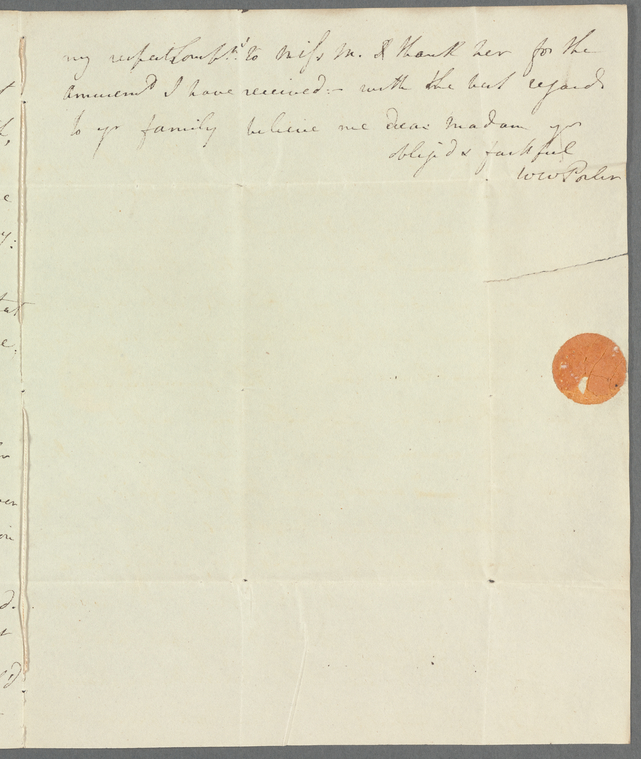 my respect Compts: to Miss M. & thank her for the
amusemt I have received:- with the best regards
to yr family believe me Dear Madam yr
obliged & faithful
WWPorter